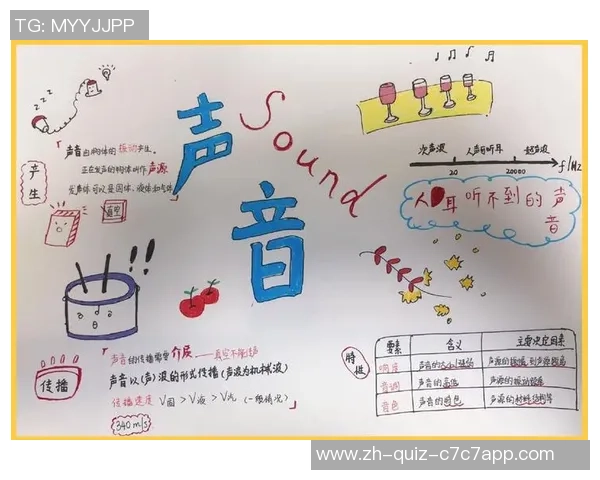 TG: MYYJJPP
声音
Sound
产生
声音由物体的振动产生。
正在发声的物体叫作声源
发声体可以是固体、液体和气体
真空
次声波 人耳可听 超声波
20 20000 f/Hz
人耳听不到的声音
传播
声音的传播需要介质——真空不能传声
声音以(声)波的形式传播(声波为机械波)
传播速度 V固>V液>V气 (一般情况)
340m/s
特性
要素 含义 主要决定因素
响度 声音的大小/强弱 声源的振幅,到声源距离
音调 声音的高低 声源的振动频率
音色 声音的特色 声源的材料结构等
www.zh-quiz-c7c7app.com